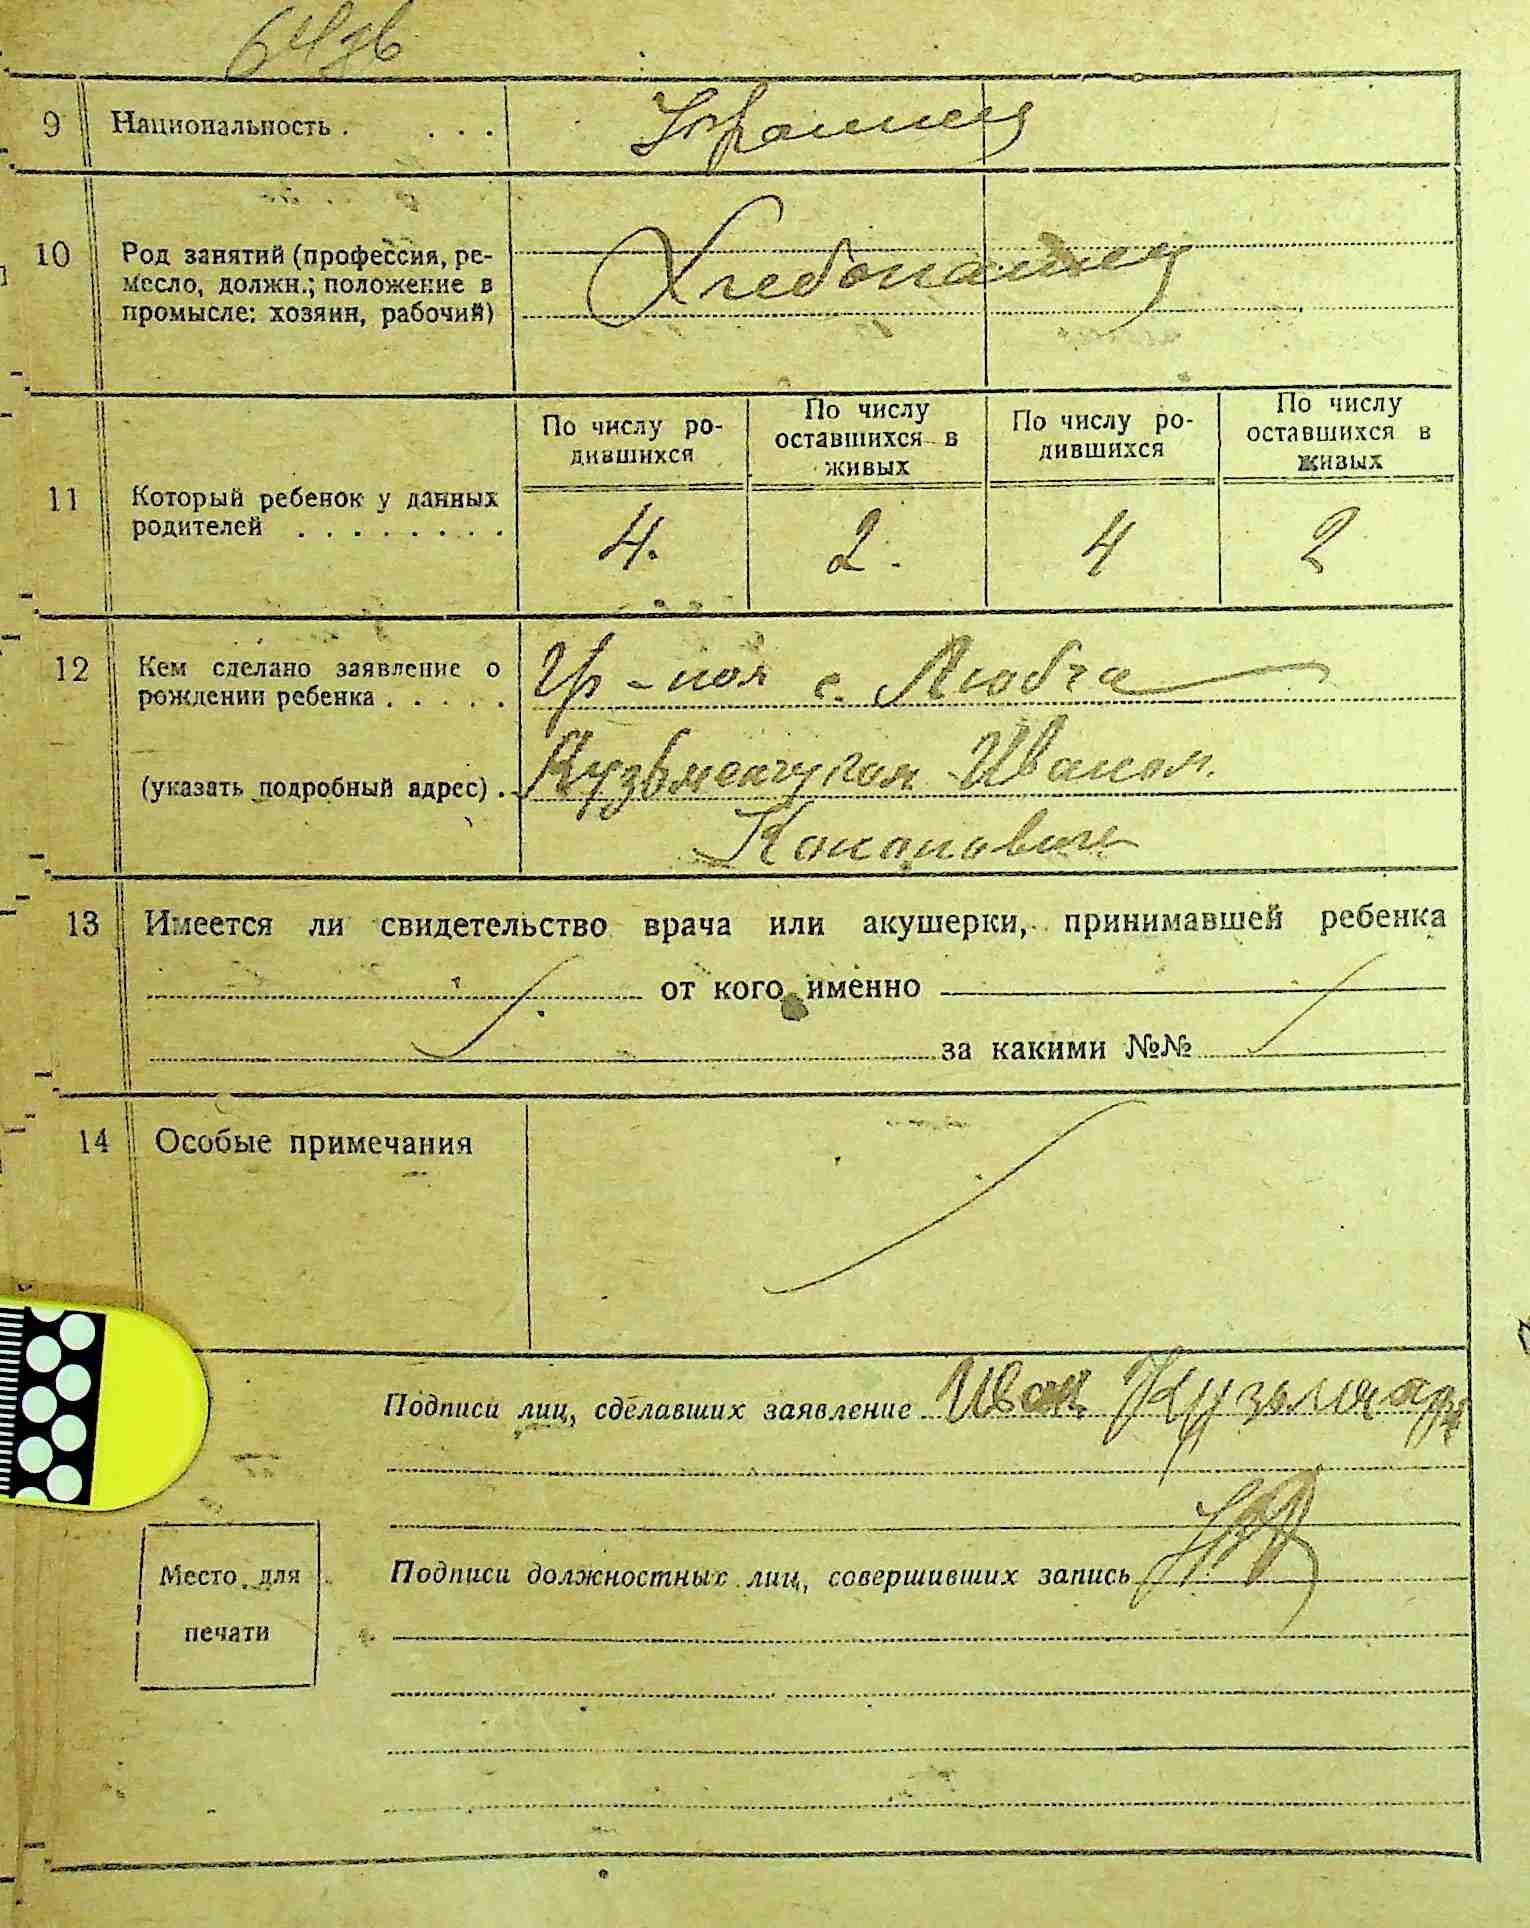 9 Национальность . . . . Украинец
10 Род занятий (профессия, ре-
месло, должн.; положение в
промысле: хозяин, рабочий) Хлебопашец
По числу ро-
дившихся
По числу
оставшихся в
живых
По числу ро-
дившихся
По числу
оставшихся в
живых
11 Который ребенок у данных
родителей . . . . . . . .
4. 2. 4 2
12 Кем сделано заявление о
рождении ребенка . . . . . Гр-ном с. Любча
(указать подробный адрес) . Кузьменчуком Иваном
Кононович
13 Имеется ли свидетельство врача или акушерки, принимавшей ребенка
от кого именно
за какими №№
14 Особые примечания
Подписи лиц, сделавших заявление Иван
Подписи должностных лиц, совершивших запись
Место для
печати